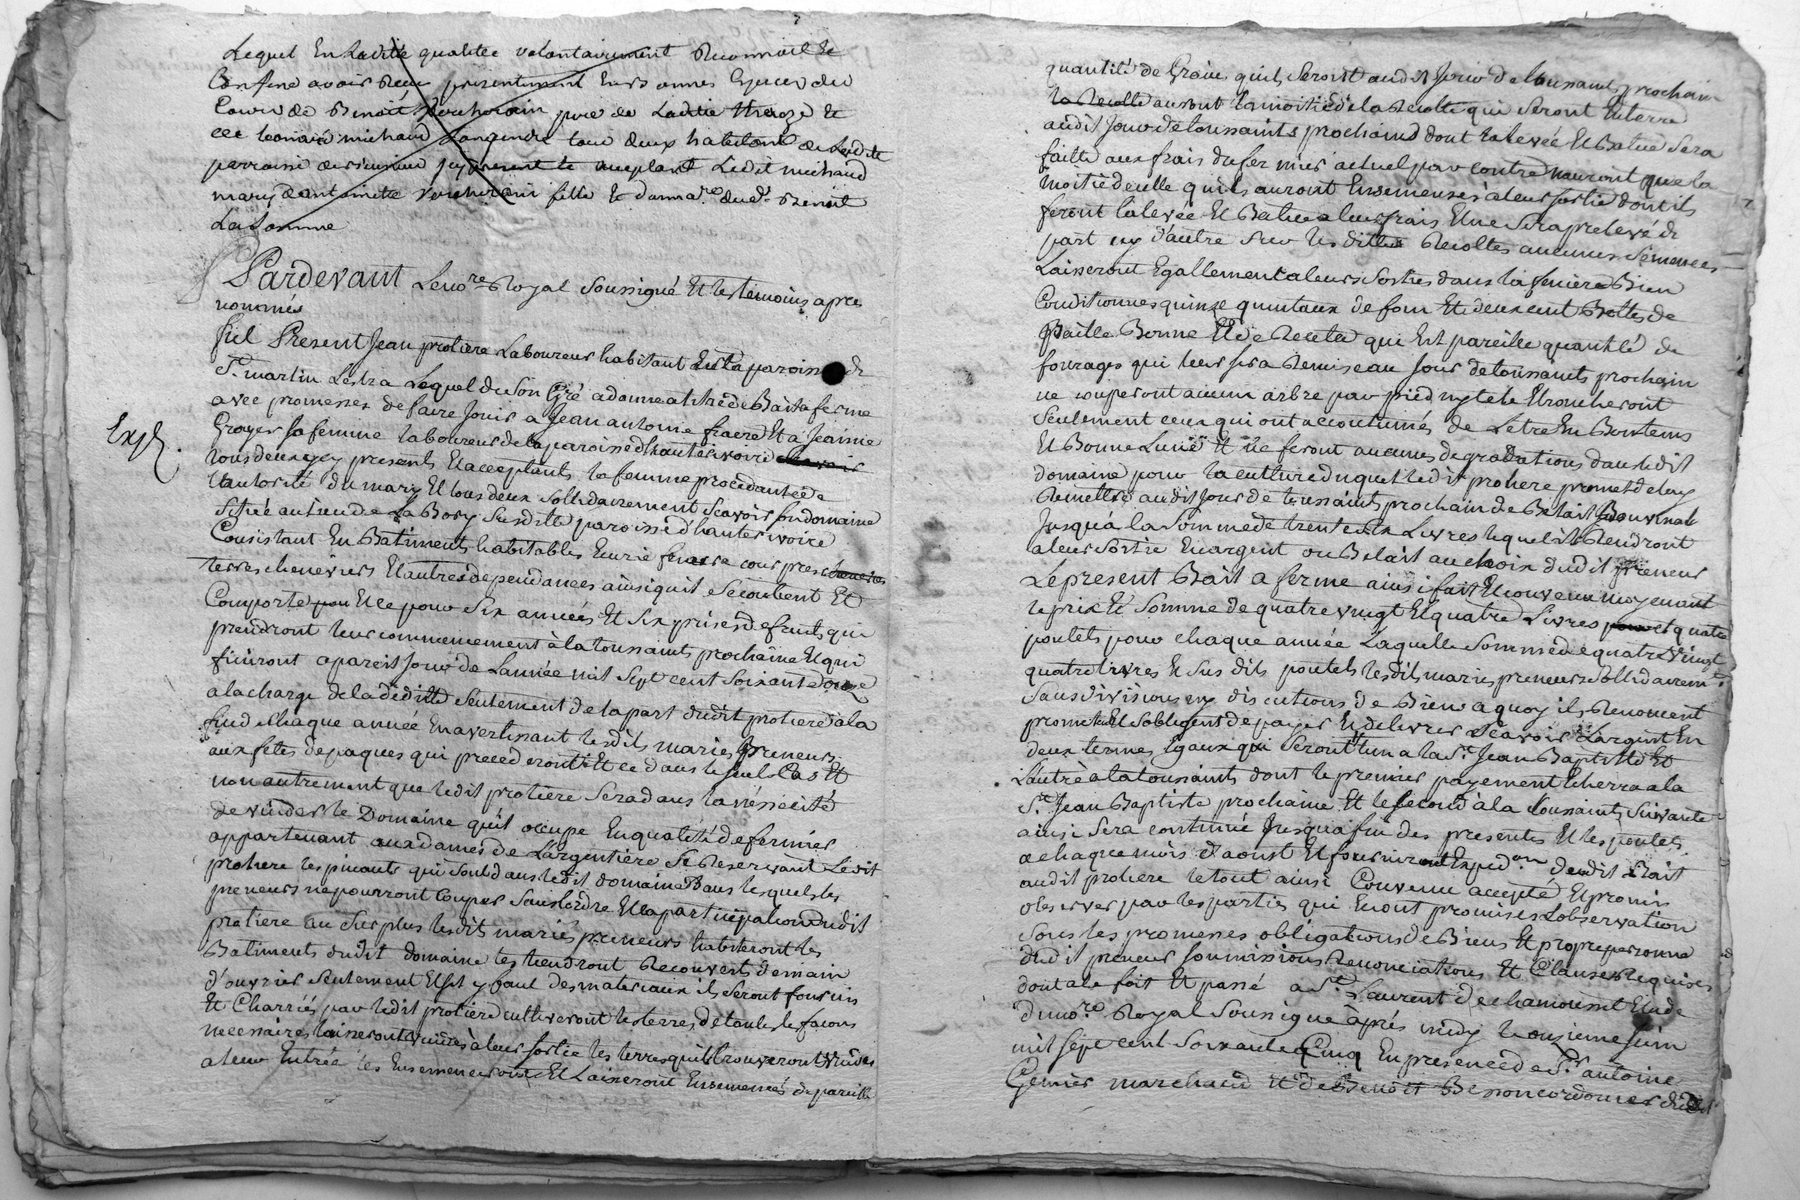 Lequel En Ladite qualitée volontairement Reconnoit et
Confesse avoir Receu presentement En bonnes Especes du
Cours de Benoit Vouherain pere de Ladite therèze Et
de leonard michaud Sangendre tous deux habitans de Ladite
parroisse de ici present et acceptant Ledit michaud
mary dantoinete Vouherain fille Et donna.re dud. Benoit
La Somme
Pardevant Le no.re Royal Soussigné Et les temoins apres
nommés
fut Present Jean protiere Laboureur habitant En la paroisse de
S.t martin Lestra Lequel de Son Gré a donné a titre de Bail a ferme
avec promesses de faire Jouir a Jean antoine Et a Jeanne
Groyer sa femme laboureurs de la paroisse d'hauterivoire
tous deux icy presents Et acceptants la femme procedante de
l'autorité du mary Et tous deux Sollidairement Scavoir Un domaine
Scitué au lieu de La Bory Susditte paroisse d'hauterivoire
Exp.
Consistant En Batiments habitables Ecurie feniere cour pres
terres cheneviers Et autres dependances ainsi quil Se Contient Et
Comporte Et ce pour Six années Et Six prises de fruits qui
prendront leur commencement à la toussaints prochaine Et qui
finiront a pareil Jour de Lannée mil Sept cent Soixante onze
a la charge de la déditte Seulement de la part dudit protiere à la
fin de Chaque année En avertissant lesdits mariés preneurs
aux fetes de paques qui precederont Et ce dans le Seul Cas Et
non autrement que ledit protiere Sera dans la nésséssité
de vuider le Domaine qu'il occupe En qualité de fermier
appartenant aux dames de Largentière Se Reservant Ledit
protiere les pinonts qui Sont dans ledit domaine dans lesquels les
preneurs ne pourront Couper Sans lordre Et la participation dudit
protiere au Surplus lesdits mariés preneurs habiteront les
Batiments dudit domaine les tiendront Recouverts de main
d'ouvrier Seulement Et S'il y faut des materiaux ils Seront fournis
Et Charriés par ledit protiere cultiveront les terres de toutes les façons
necessaires laisseront vuides à leur sortie les terres quils trouveront Vuides
a leur Entrée les Ensemenceront Et Laisseront Ensemencés de pareille
quantité de Grains quils Seront audit Jour de toussaints prochain
la Recolte auront la moitié de la Recolte qui Seront En terre
audit Jour de toussaints prochains dont la levée Et Batue Sera
faitte aux frais du fermier actuel par contre n'auront que la
moitié de celle qu'ils auront Ensemencés à leur sortie dont ils
feront la levée Et Batue a leur frais Et ne Sera prelevé de
part ny d'autre Sur lesdittes Recoltes aucunes Semences
Laisseront Egallement a leurs Sorties dans la feniere Bien
Conditionnés quinze quintaux de foin Et deux cent Bottes de
Paille Bonne Et de Recette qui Est pareille quantité de
fourages qui leur sera Remis au Jour de toussaints prochain
ne couperont aucun arbre par pied ny tete Et
Seulement ceux qui ont accoutumés de Letre En Bon tems
Et Bonne Lune Et ne feront aucunes degradations dans ledit
domaine pour la culture duquel ledit protiere promet de leur
Remettre audit Jour de toussaints prochain de Betail Bouvinale
Jusqu'à la Somme de trente six Livres lequel ils Rendront
a leur Sortie En argent ou Betail au choix dudit preneur
Le present Bail a ferme ainsi fait Et Convenu moyenant
le prix Et Somme de quatre vingt Et quatre Livres et quatre
poulets pour chaque année Laquelle Somme de quatre Vingt
quatre livres Et Sus dits poulets lesdits mariés preneurs Sollidairem.t
Sans division ny discutions de Biens a quoy ils Renoncent
promettent Et S'obligent de payer Et delivrer Scavoir L'argent En
deux termes Egaux qui Seront lun a la S.t Jean Baptiste Et
L'autre a la toussaints dont le premier payement Echerra a la
S.t Jean Baptiste prochaine Et le Second a la toussaints Suivante
ainsi Sera continué Jusqu'a fin des presentes Et les poulets
a chaque mois d'aoust Et fourniront Exped.on dudit Bail
audit protiere le tout ainsi Convenu accepté Et promis
observer par les parties qui En ont promis Lobservation
Sous les promesses obligations de Biens Et propre personne
dudit preneur Soumissions Renonciations Et Clauses Requises
dont acte fait Et passé a S.t Laurent de chamousset Etude
du no.re Royal Soussigné après midy le onzieme Juin
mil Sept cent Soixante Cinq En presence de S.r antoine
Genier marchand Et de Benoit Besson cordonnier dudit